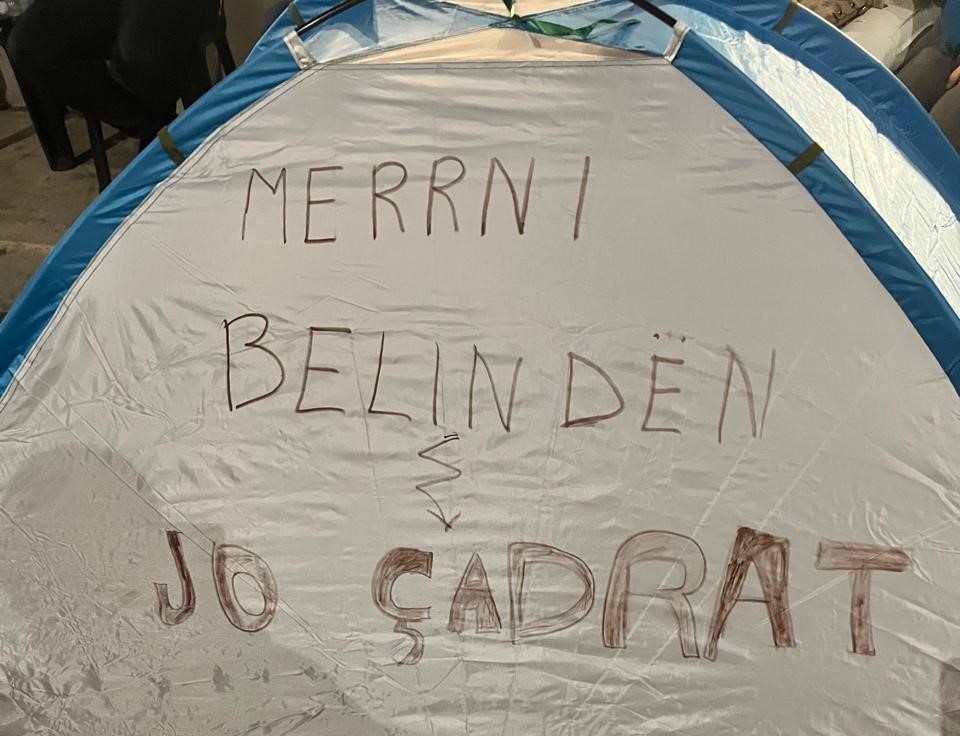 MERRNI
BELINDËN
JO ÇADRAT